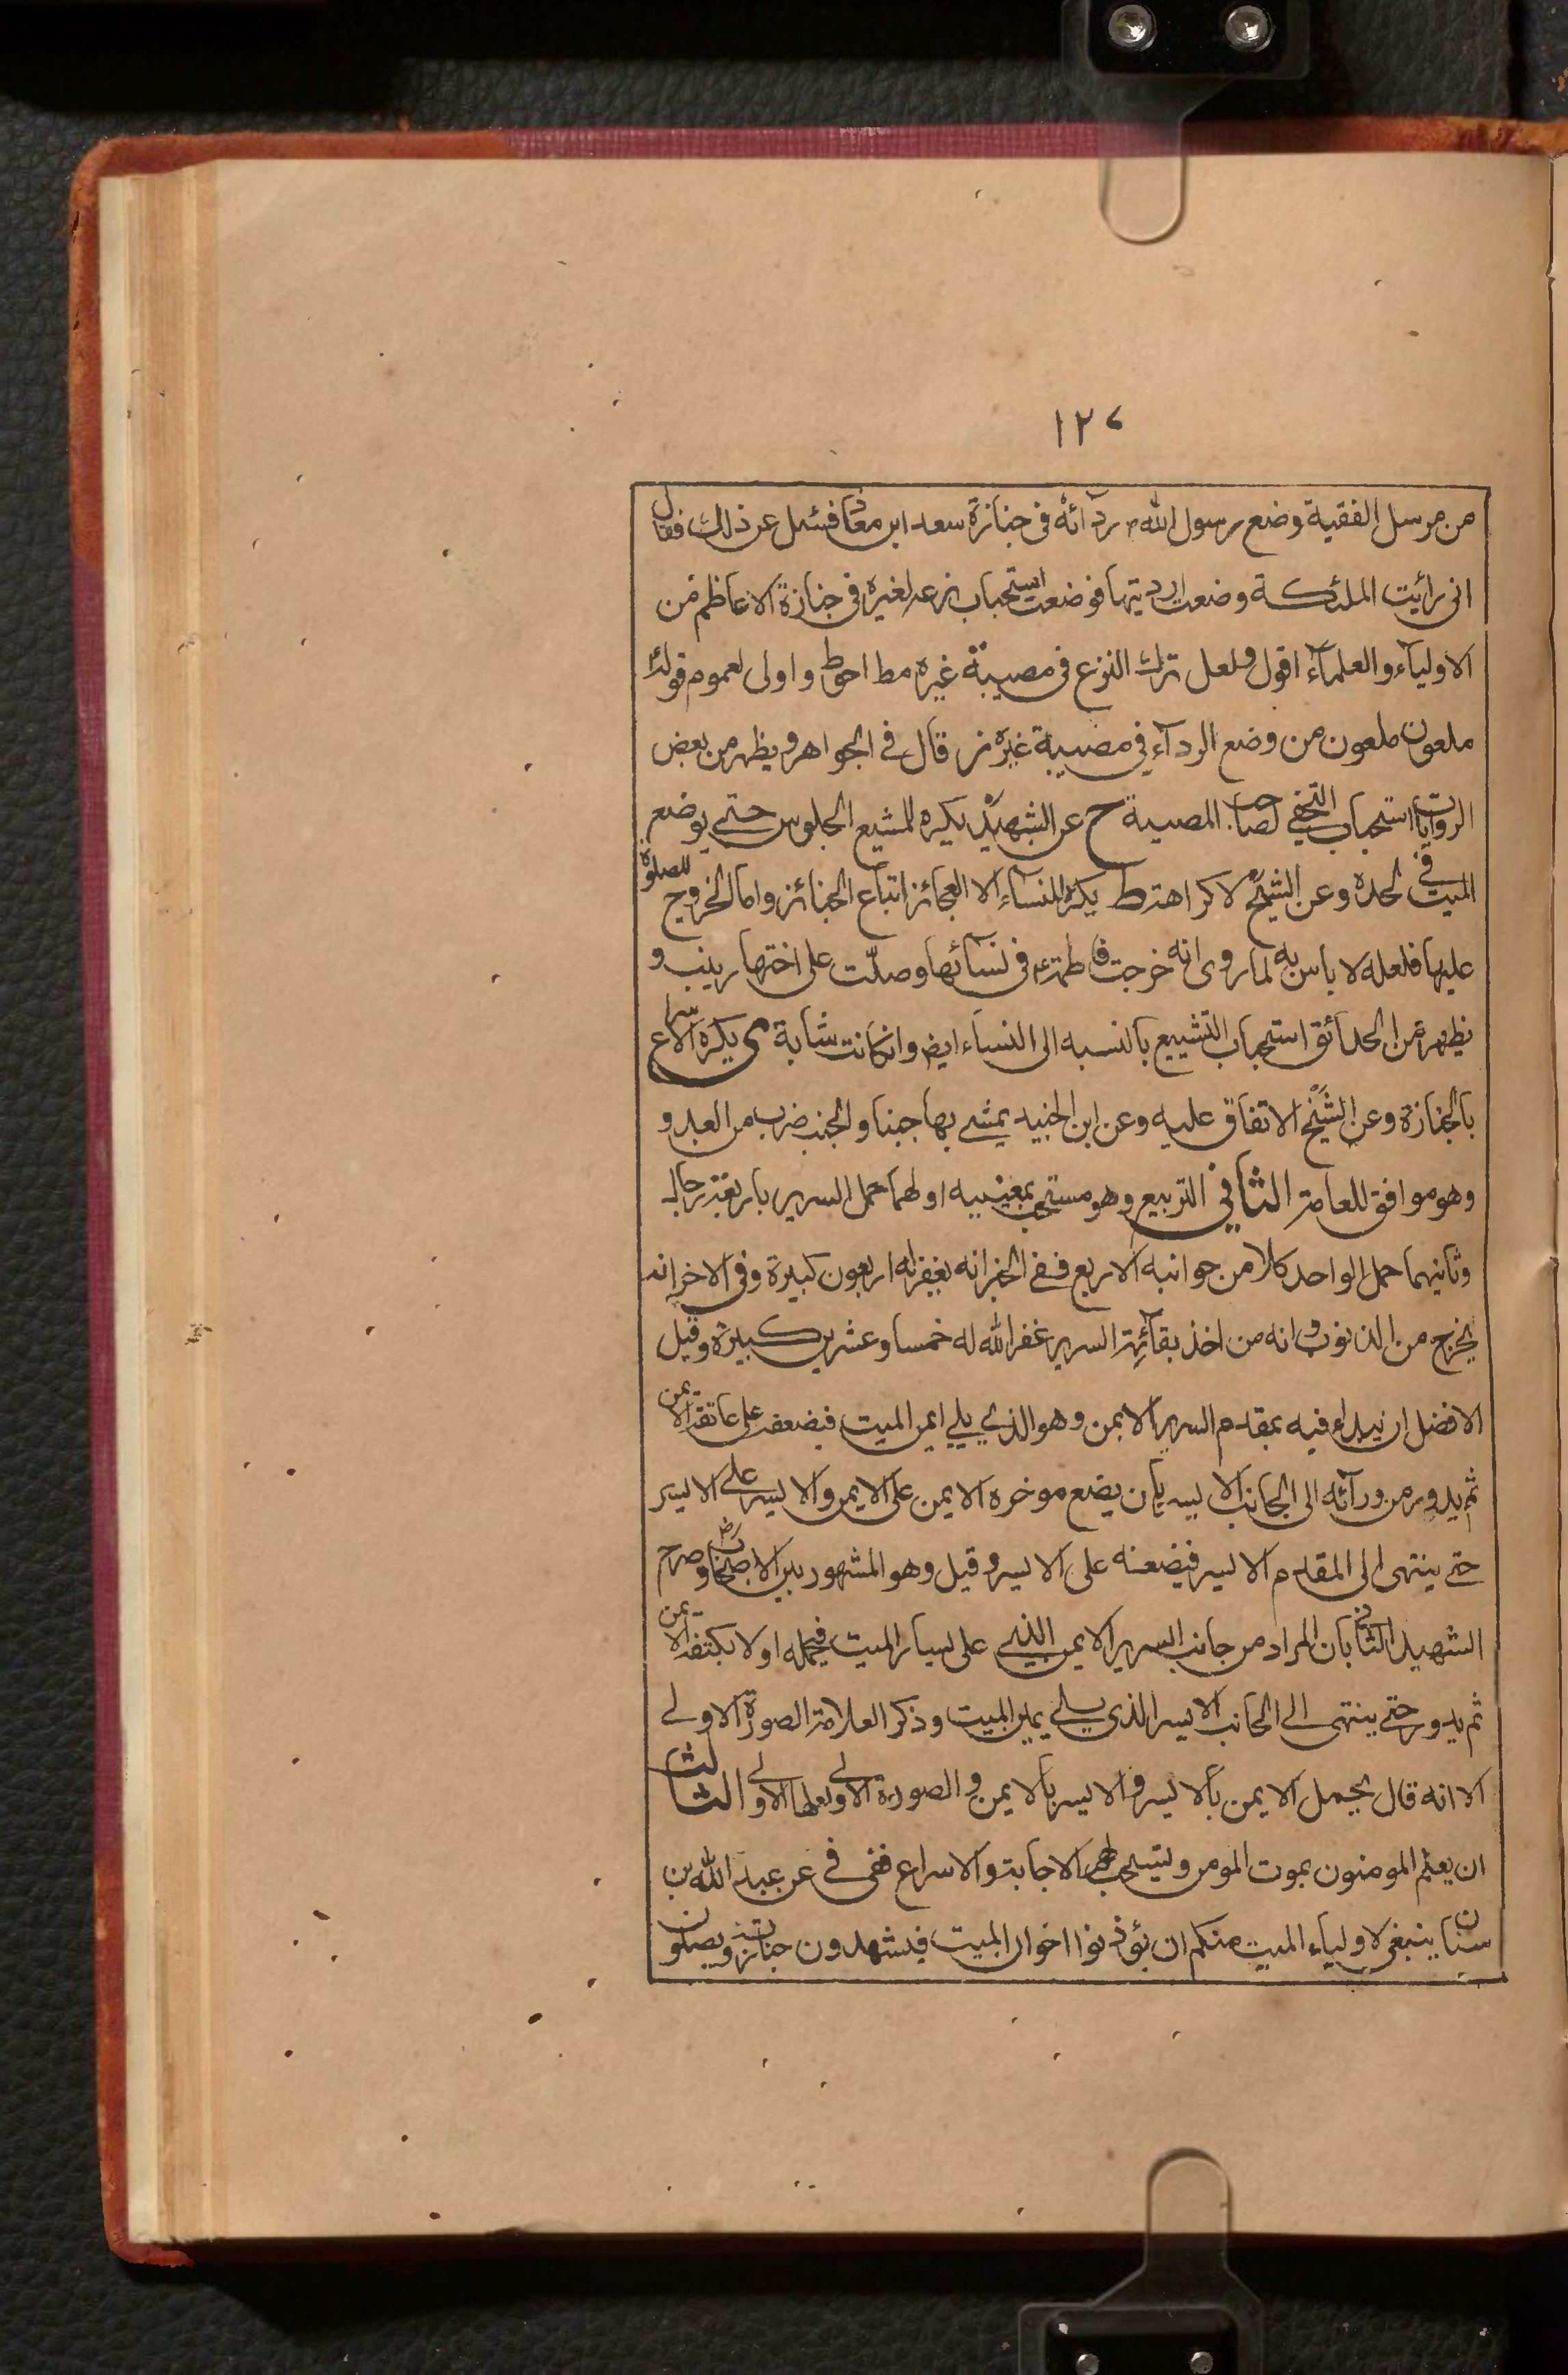 ١٢٧
من مرسل الفقيه وضع رسول الله ص ردآئه فى جنازة سعد ابن معاذ فسئل عن ذلك فقال
انى رأيت الملئكة وضعت ارديتها فوضعت استحباب نزعه لغيره فى جنازة الاعاظم من
الاوليآء والعلمآء اقول ولعل ترك النزع فى مصيبة غيره مط احوط واولى لعموم قوله
ملعون ملعون من وضع الردآء في مصيبة غيره قال في الجواهر ويظهر من بعض
الروايات استحباب التحفي لصاحب المصيبة ح عن الشهيد يكره للمشيع الجلوس حتى يوضع
الميت في لحده وعن الشيخ لا كراهته ط يكره للنسآء الا العجائز اتباع الجنائز واما الخروج للصلوة
عليها فلعله لا باس به لما روى انه خرجت فاطمة ع فى نسآئها وصلّت على اختها زينب و
يظهر من الحدائق استحباب التشييع بالنسبه الى النساء ايض وان كانت شابة ى يكره الاسراع
بالجنازة وعن الشيخ الاتفاق عليه وعن ابن الجنيد يمشى بها جنبا والجنب ضرب من العدو
وهو موافق للعامة الثاني التربيع وهو مستحب بمعنييه اولهما حمل السرير باربعة رجال
وثانيهما حمل الواحد كلا من جوانبه الاربع ففى الخبر انه يغفر له اربعون كبيرة وفى الاخر انه
يخرج من الذنوب وانه من اخذ بقآئمة السرير غفر الله له خمسا وعشرين كبيرة وقيل
الافضل ان يبداء فيه بمقدم السرير الايمن وهو الذي يلي ايمن الميت فيضعه على عاتقه الايمن
ثم يدور من ورآئه الى الجانب الايسر بان يضع موخره الايمن على الايمن والايسر على الايسر
حتى ينتهى الى المقدم الايسر فيضعنه على الايسر وقيل وهو المشهور بين الاصحاب وصرح
الشهيد الثانى بان المراد من جانب السرير الايمن الذي على يسار الميت فيحمله اولا بكتفه الايمن
ثم يدور حتى ينتهى الى الجانب الايسر الذى يلي يمين الميت وذكر العلامة الصورة الاولى
الا انه قال يحمل الايمن بالايسر والايسر بالايمن والصورة الاولى لعلها الاولى الثالث
ان يعلم المومنون بموت المومن ويستحب لهم الاجابة والاسراع ففى في عن عبد الله بن
سنان ينبغى لاولياء الميت منكم ان يؤذنوا اخوان الميت فيشهدون جنازته ويصلون